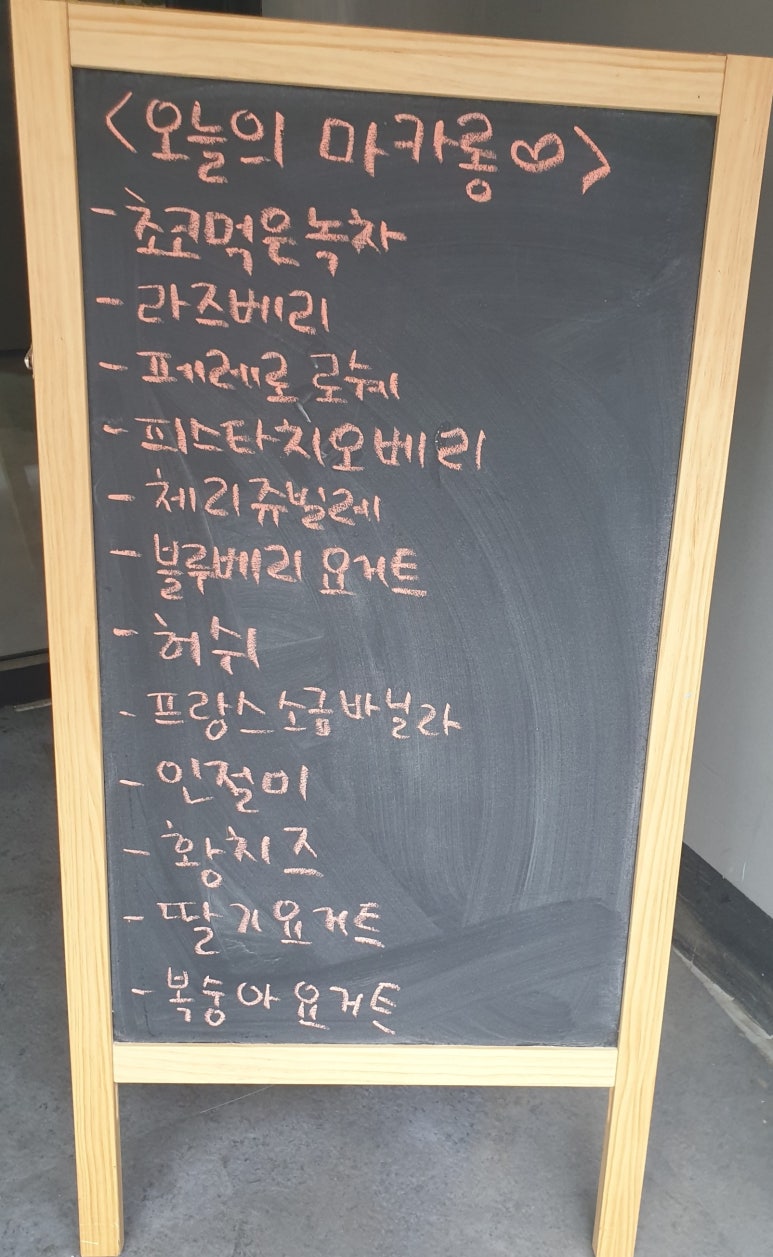 <오늘의 마카롱♡>
- 초코먹은녹차
- 라즈베리
- 페레로 로쉐
- 피스타치오베리
- 체리쥬빌레
- 블루베리 요거트
- 허쉬
- 프랑스소금바닐라
- 인절미
- 황치즈
- 딸기요거트
- 복숭아요거트